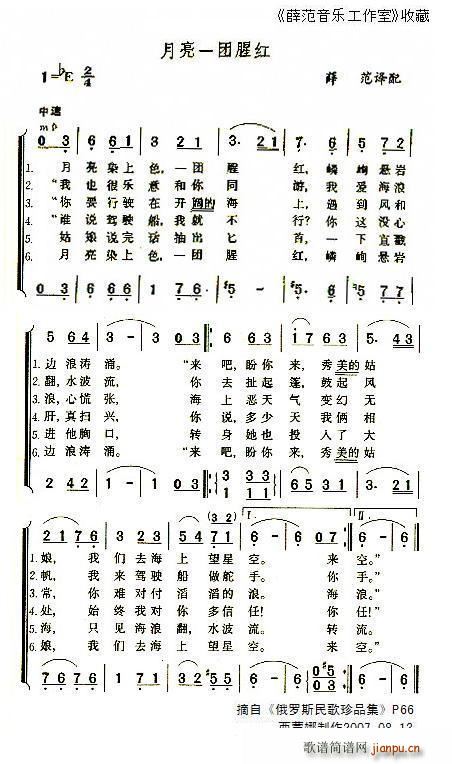 《薛范音乐工作室》收藏
月亮一团腥红
1=♭E 2/4
薛 范译配
中速
mp
0 3 6 6 6 1 3 2 1 3· 2 1 7· 6 5 7 2
1. 月 亮染上 色,一团 腥 红,嶙峋悬岩
2. “我 也很乐 意和你 同 游,我 爱海浪
3. “你 要行驶 在开阔的 海 上,遇到风和
4. “谁 说驾驶 船,我就 不 行?你 这没心
5. 姑 娘说完 话抽出 匕 首,一下直戳
6. 月 亮染上 色,一团 腥 红,嶙峋悬岩
0 3 6 6 6 1 7 6 ♯5 7· 6 ♯5 7 6
5 6 4 3 — 3 0 3 6 6 1 7 6 3 5· 4 3
1. 边 浪涛 涌。 “来 吧,盼你 来,秀美的姑
2. 翻,水波 流, 你 去扯起 篷,鼓起 风
3. 浪,心慌 张, 海 上恶天 气变幻 无
4. 肝,真扫 兴, 你 说,多少 天我俩 相
5. 进他胸 口, 转 身她也 投 入了大
6. 边浪涛 涌。 “来 吧,盼你 来,秀美的姑
2 4 2 1 — 1 0 3
2 1 7 6 3 2 3 5 2 1 7 6 — 6 0 7 6 0
(3 2)
1. 娘, 我 们去海 上望星 空。 来 空。”
2. 帆, 我 来驾驶 船做舵 手。 你 手。”
3. 常, 你 难对付 滔滔的 浪。 海 浪。”
4. 处, 始 终我对 你多信 任! 你 任!”
5. 海, 只 见海浪 翻,水波 流。 转 流。
6. 娘, 我 们去海 上望星 空。 来 空。”
摘自《俄罗斯民歌珍品集》P66
西蒙娜制作2007-08-13
歌谱简谱网
jianpu.cn